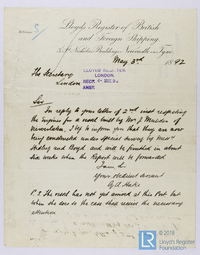 Lloyd's Register of British
and Foreign Shipping.
St Nicholas Buildings, Newcastle on Tyne
May 3rd 1892
The Secretary
London
LLOYD'S REGISTER
LONDON
RECD
ANSD
Sir
In reply to your letter of 2nd inst respecting
the Engines for a vessel built by Mr J.
Newcastle, I beg to inform you that they are now
being constructed under special survey by Messrs
and Boyd and will be finished in about
six weeks when the Report will be forwarded
I am Sir
Your obedient servant
P.S. The vessel has not yet arrived at this Port but
when she does so the case shall receive the necessary
attention
© 2019
Lloyd's Register
Foundation